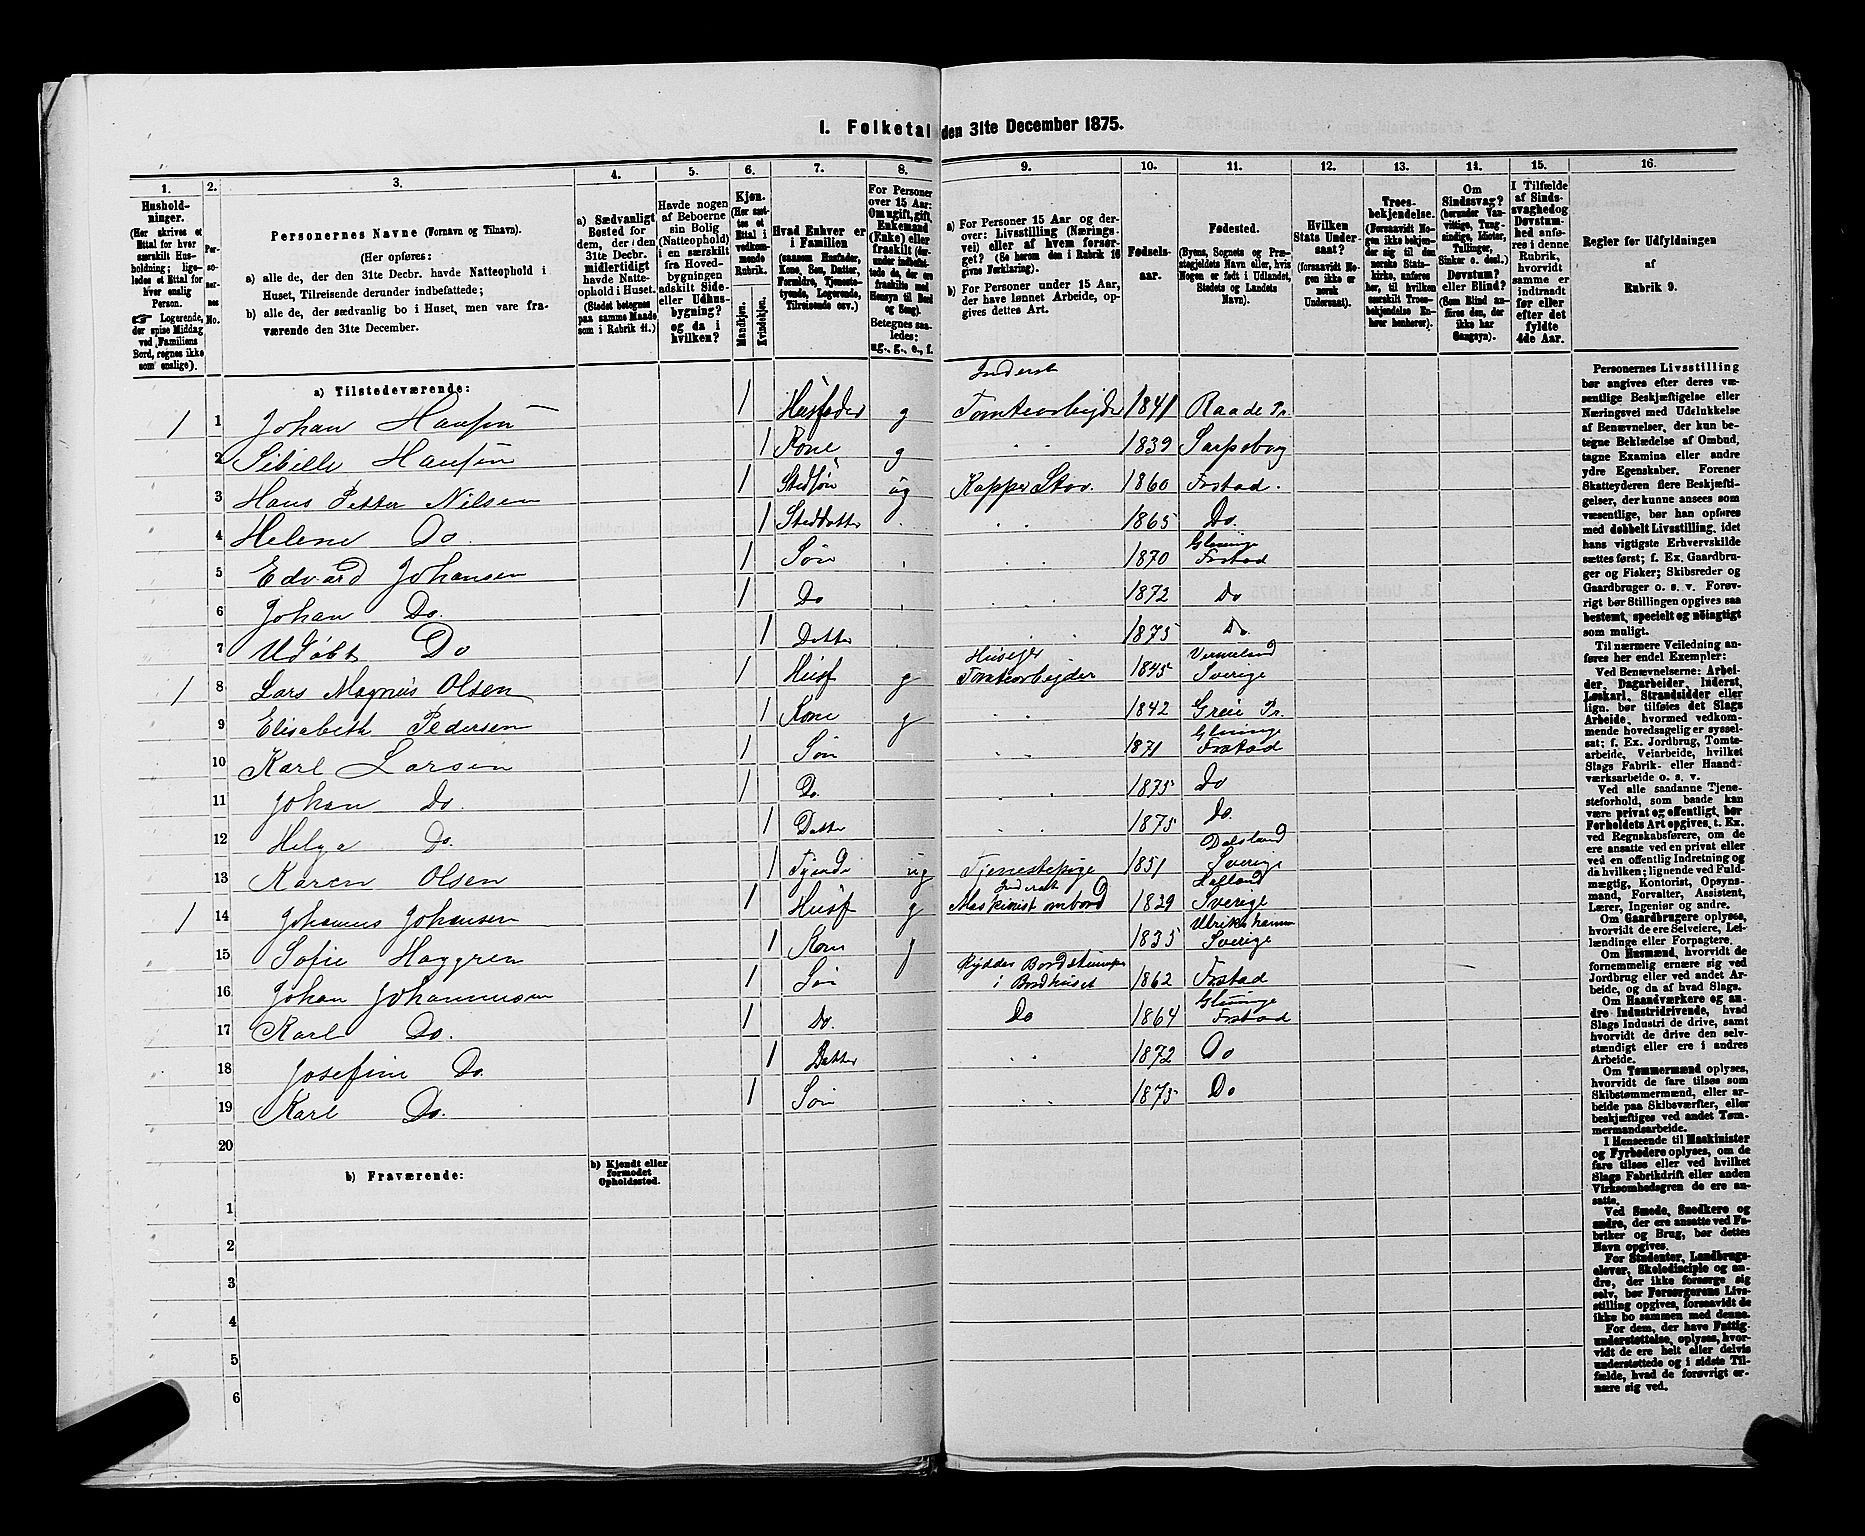 1. Folketal den 31te December 1875.
1. 2. 3. 4. 5. 6. 7. 8. 9. 10. 11. 12. 13. 14. 15. 16.
Hushold-
ninger.
(Her skrives et
Ettal for hver
særskilt Hus-
holdning; lige-
ledes et Ettal for
hver enslig
Person.
Logerende,
der spise Middag
ved Familiens
Bord, regnes ikke
som enslige).
Per-
so-
ner-
nes
No.
Personernes Navne (Fornavn og Tilnavn).
(Her opføres:
a) alle de, der den 31te Decbr. havde Natteophold i
Huset, Tilreisende derunder indbefattede;
b) alle de, der sædvanlig bo i Huset, men vare fra-
værende den 31te December.
a) Sædvanligt
Bosted for
dem, der i den
31te Decbr.
midlertidigt
havde Natte-
ophold i Huset.
(Stedet betegnes
paa samme Maade
som i Rubrik 11.)
Havde nogen
af Beboerne
sin Bolig
(Natteophold)
i en særskilt
fra Hoved-
bygningen
adskilt Side-
eller Udhus-
bygning?
og da i
hvilken?
Kjøn.
(Her sæt-
tes et
Ettal i
vedkom-
mende
Rubrik.
Mandkjøn.
Kvindekjøn.
Hvad Enhver er
i Familien
(saasom Husfader,
Kone, Søn, Datter,
Forældre, Tjeneste-
tyende, Logerende,
Tilreisende osv.)
For Personer
over 15 Aar:
Om ugift, gift,
Enkemand
(Enke) eller
fraskilt (der-
under indbefat-
tede de, der ere
fraskilte med
Hensyn til Bord
og Seng).
Betegnes saa-
ledes:
ug., g., e., f.
a) For Personer 15 Aar og der-
over: Livsstilling (Nærings-
vei) eller af hvem forsør-
get? (Se herom den i Rubrik 16
givne Forklaring).
b) For Personer under 15 Aar,
der have lønnet Arbeide, op-
gives dettes Art.
Fødsels-
aar.
Fødested.
(Byens, Sognets og Præ-
stegjeldets Navn eller, hvis
Nogen er født i Udlandet,
Stedets og Landets
Navn).
Hvilken
Stats Under-
saat?
(forsaavidt No-
gen ikke er
norsk
Undersaat).
Troes-
bekjendelse.
(Forsaavidt No-
gen ikke bekjen-
der sig til den
norske Stats-
kirke, anføres
her, til hvilken
særskilt Troes-
bekjendelse En-
hver henhører).
Om
Sindssvag?
(herunder Van-
vittige, Tung-
sindige, Idioter,
Tullinger,
Sinker o. desl.)
Døvstum?
eller Blind?
(Som Blind an-
føres den, der
ikke har
Gangsyn).
I Tilfælde
af Sinds-
svaghed og
Døvstum-
hed anfø-
res i denne
Rubrik,
hvorvidt
samme er
indtraadt
før eller
efter det
fyldte
4de Aar.
Regler for Udfyldningen
af
Rubrik 9.
a) Tilstedeværende:
Inderst
1 1 Johan Hansen 1 Husfader g Tomtearbejder 1841 Raade Pr.
2 Sibille Hansen 1 Kone g 1839 Sarpsborg
3 Hans Petter Nilsen 1 Stedsøn ug 1860 Frstad.
4 Helene Do. 1 Steddatter 1865 Do.
Glemige
5 Edvard Johansen 1 Søn 1870 Frstad
6 Johan Do. 1 Do 1872 Do
7 Udøbt Do 1 Datter 1875 Do.
Huseier Vermeland
1 8 Lars Magnus Olsen 1 Husf g Tomtearbejder 1845 Sverige
9 Elisabeth Pedersen 1 Kone g 1842 Pr.
Glemige
10 Karl Larsen 1 Søn 1871 Frstad
11 Johan Do. 1 Do. 1875 Do
12 Helga Do. 1 Datter 1875 Do.
Dalsland
13 Karen Olsen 1 Tyende ug Tjenestepige 1851 Sverige
Inderst Halland
1 14 Johannes Johansen 1 Husf g Maskinist ombord 1829 Sverige
Ulrikshamn
15 Sofie Haggren 1 Kone g 1835 Sverige
16 Johan Johannesen 1 Søn Rydder Bordstumper i Bordhuset 1862 Frstad
Glemige
17 Karl Do. 1 Do. Do 1864 Frstad
18 Josefine Do. 1 Datter 1872 Do
19 Karl Do. 1 Søn 1875 Do
20
b) Fraværende:
b) Kjendt eller
formodet
Opholdssted.
1
2
3
4
5
6
Personernes Livsstilling
bør angives efter deres væ-
sentlige Beskjæftigelse eller
Næringsvei med Udelukkelse
af Benævnelser, der kun be-
tegne Beklædelse af Ombud,
tagne Examina eller andre
ydre Egenskaber. Forener
Skatteyderen flere Beskjæfti-
gelser, der kunne ansees som
væsentlige, bør han opføres
med dobbelt Livsstilling, idet
hans vigtigste Erhvervskilde
sættes først; f. Ex. Gaardbru-
ger og Fisker; Skibsreder og
Gaardbruger o. s. v. Forøv-
rigt bør Stillingen opgives saa
bestemt, specielt og nøiagtigt
som muligt.
Til nærmere Veiledning an-
føres her endel Exempler:
Ved Benævnelserne: Arbei-
der, Dagarbeider, Inderst,
Løskarl, Strandsidder eller
lign. bør tilføies det Slags
Arbeide, hvormed vedkom-
mende hovedsagelig er syssel-
sat; f. Ex. Jordbrug, Tomte-
arbeide, Veiarbeide, hvilket
Slags Fabrik- eller Haand-
værksarbeide o. s. v.
Ved alle saadanne Tjene-
steforhold, som baade kan
være privat og offentligt, bør
Forholdets Art opgives, t. Ex.
ved Regnskabsførere, om de
ere ansatte ved en privat eller
ved en offentlig Indretning og
da hvilken; lignende ved Fuld-
mægtig, Kontorist, Opsyns-
mand, Forvalter, Assistent,
Lærer, Ingeniør og andre.
Om Gaardbrugere oplyses,
hvorvidt de ere Selveiere, Lei-
lændinge eller Forpagtere.
Om Husmænd, hvorvidt de
fornemmelig ernære sig ved
Jordbrug eller ved andet Ar-
beide, og da af hvad Slags.
Om Haandværkere og an-
dre Industridrivende, hvad
Slags Industri de drive, samt
hvorvidt de drive den selv-
stændigt eller ere i andres
Arbeide.
Om Tømmermænd oplyses,
hvorvidt de fare tilsøs som
Skibstømmermænd, eller ar-
beide paa Skibsværfter, eller
beskjæftiges ved andet Tøm-
mermandsarbeide.
I Henseende til Maskinister
og Fyrbødere oplyses, om de
fare tilsøs eller ved hvilket
Slags Fabrikdrift eller anden
Virksomhedsgren de ere an-
satte.
Ved Smede, Snedkere og
andre, der ere ansatte ved Fa-
briker og Brug, bør dettes
Navn opgives.
For Studenter, Landbrugs-
elever, Skoledisciple og an-
dre, der ikke forsørge sig
selv, bør Forsørgerens Livs-
stilling opgives, forsaavidt de
ikke bo sammen med denne.
For dem, der have Fattig-
understøttelse, oplyses, hvor-
vidt de ere helt eller delvis
understøttede og i sidste Til-
fælde, hvad de forøvrigt er-
nære sig ved.